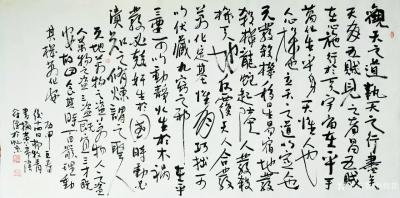 觀天之道執天之行盡矣
天有五賊見之者昌五賊
在心施行於天宇宙在乎手
萬化生乎身天性人也
人心機也立天之道以定人也
天發殺機移星易宿地發
殺機龍蛇起陸人發殺
機天地反覆天人合發
萬化定基性有巧拙可
以伏藏九竅之邪在乎
三要可以動靜火生於木禍
發必克奸生於國時動必
潰知之修煉謂之聖人
天地萬物之盜萬物人之盜
人萬物之盜三盜既宜三才既
安故曰食其時百骸理動
其機萬化安